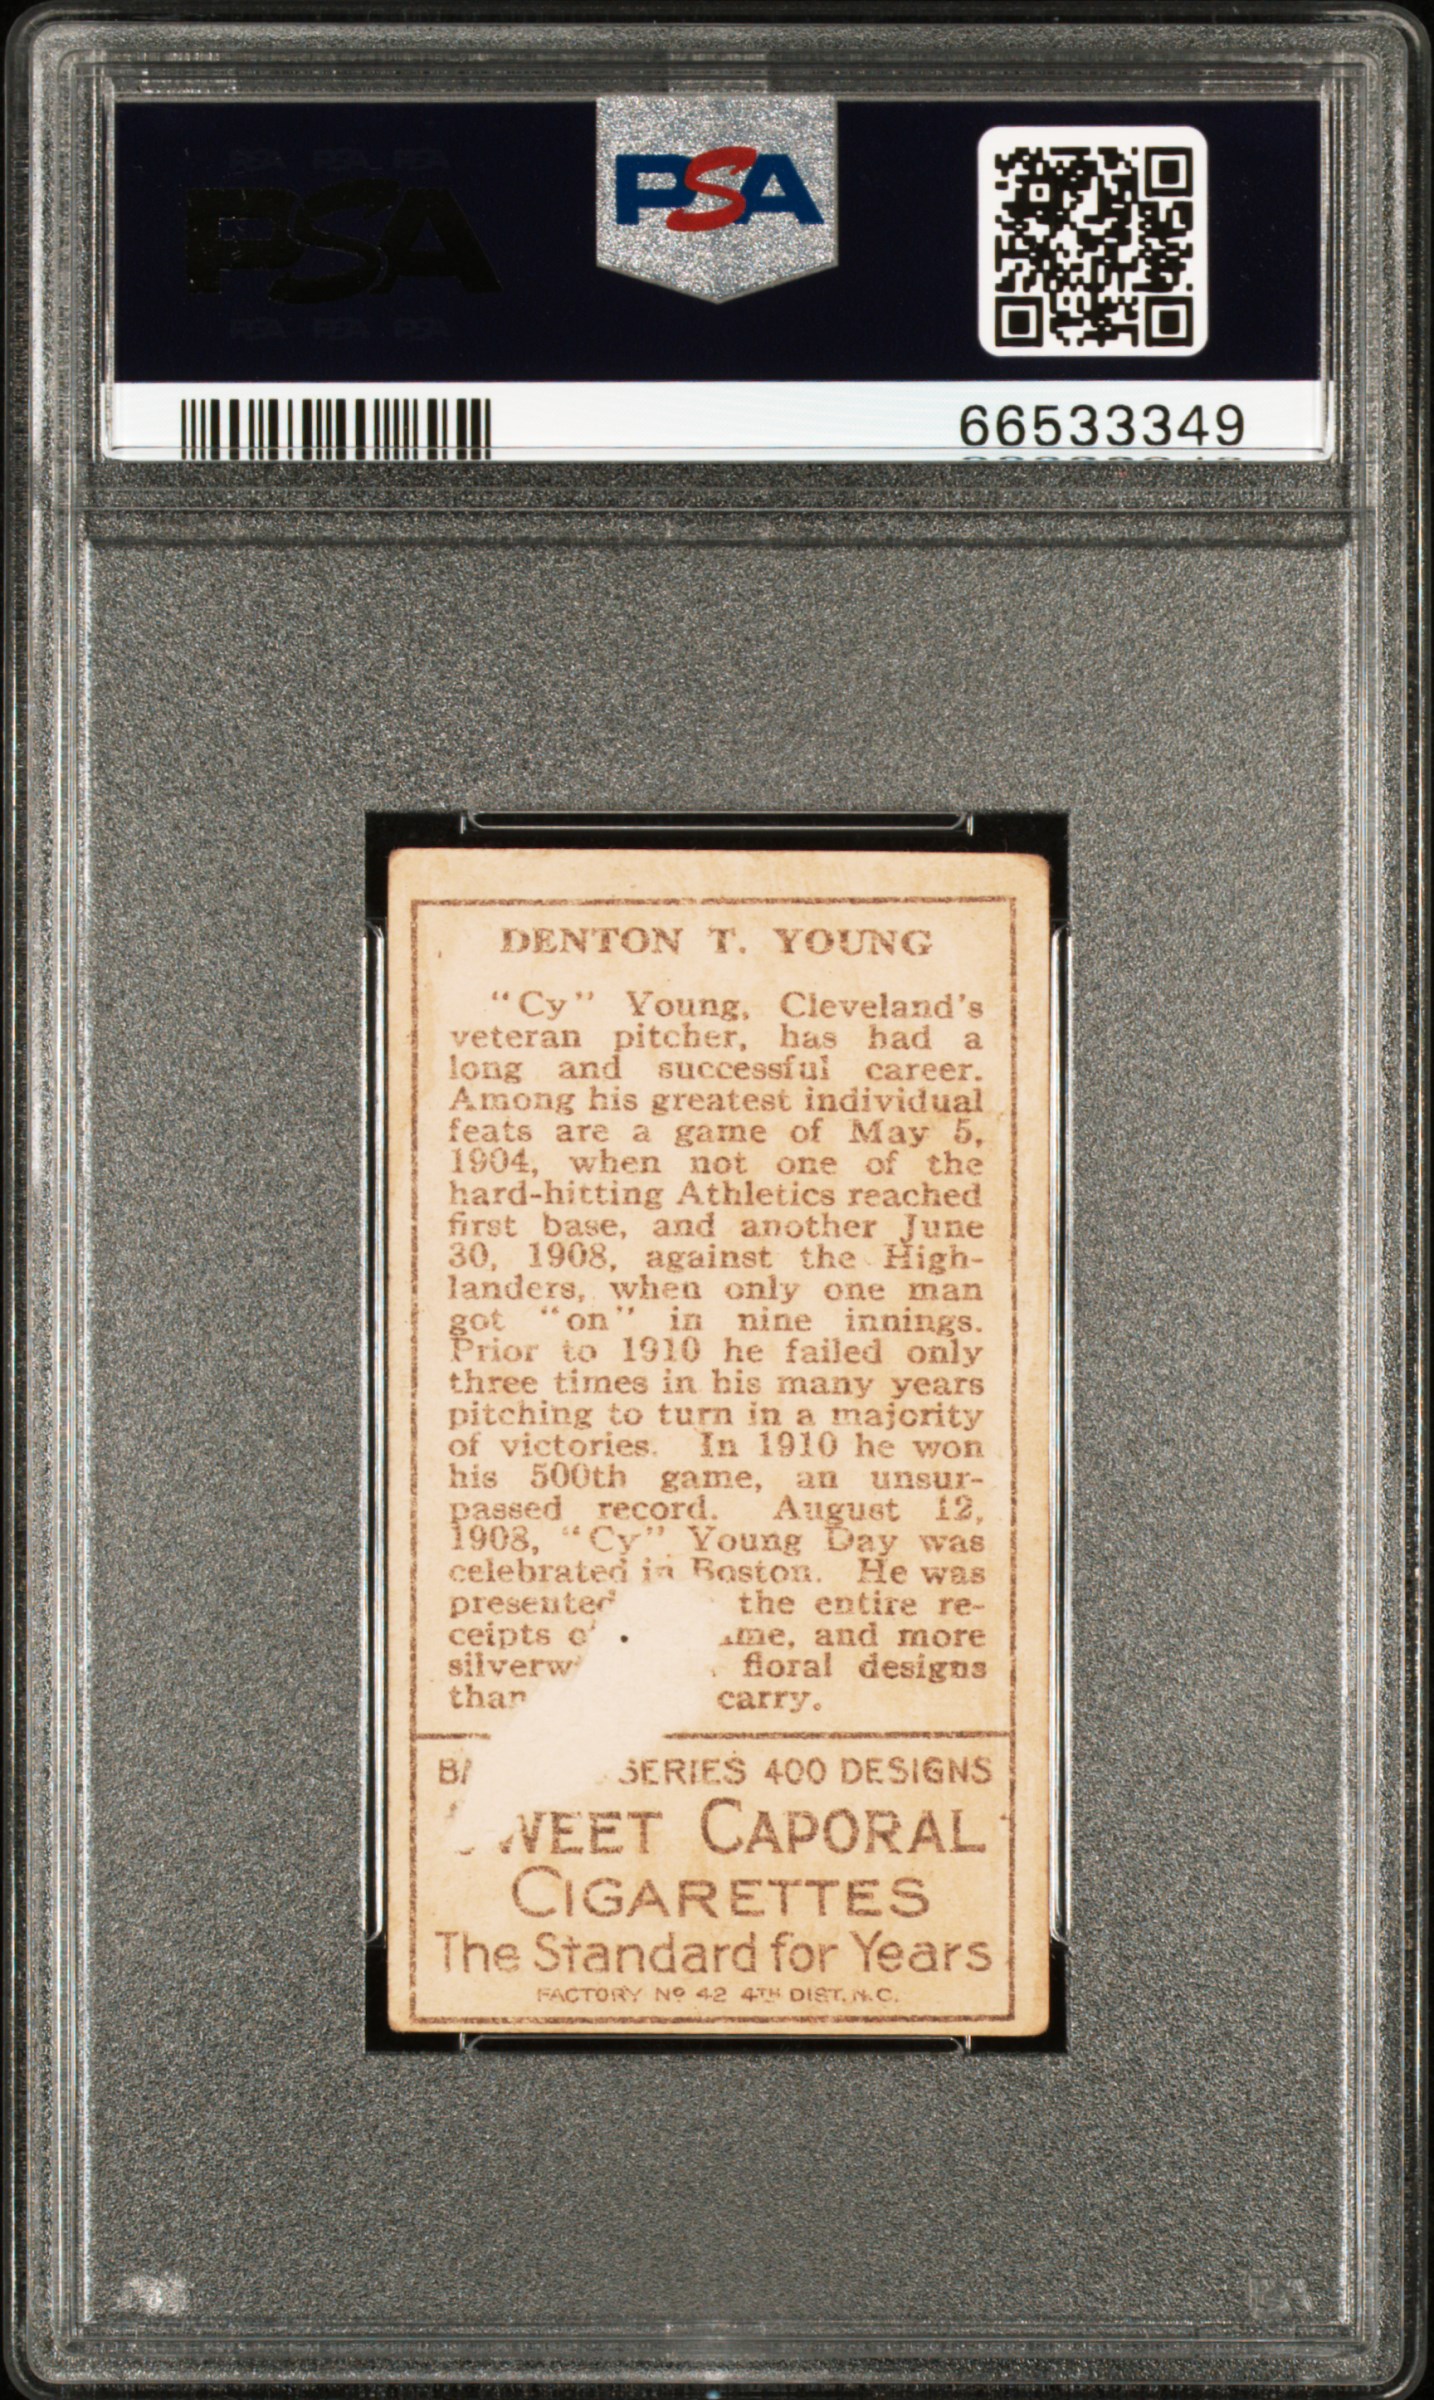 PSA
PSA
66533349
DENTON T. YOUNG
"Cy" Young, Cleveland's
veteran pitcher, has had a
long and successful career.
Among his greatest individual
feats are a game of May 5,
1904, when not one of the
hard-hitting Athletics reached
first base, and another June
30, 1908, against the High-
landers, when only one man
got "on" in nine innings.
Prior to 1910 he failed only
three times in his many years
pitching to turn in a majority
of victories. In 1910 he won
his 500th game, an unsur-
passed record. August 12,
1908, "Cy" Young Day was
celebrated in Boston. He was
presented the entire re-
ceipts and more
floral designs
carry.
SERIES 400 DESIGNS
SWEET CAPORAL
CIGARETTES
The Standard for Years
FACTORY No 42 4TH DIST. N.C.